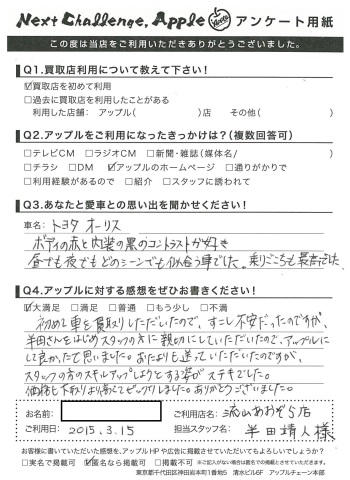 Next Challenge, Apple アンケート用紙
この度は当店をご利用いただきありがとうございました。
Q1.買取店利用について教えて下さい！
☑買取店を初めて利用
□過去に買取店を利用したことがある
利用した店舗： アップル（　　　　　）店　その他（　　　　　）
Q2.アップルをご利用になったきっかけは？（複数回答可）
□テレビCM □ラジオCM □新聞・雑誌（媒体名/　　　　　）
□チラシ □DM ☑アップルのホームページ □通りがかりで
□利用経験があるので □紹介 □スタッフに誘われて
Q3.あなたと愛車との思い出を聞かせください！
車名： トヨタ オーリス
ボディの赤と内装の黒のコントラストが好き
昼でも夜でもどのシーンでも似合う車でした。乗りごこちも最高でした。
Q4.アップルに対する感想をぜひお書きください！
☑大満足 □満足 □普通 □もう少し □不満
初めて車を買取りしていただいたので、すこし不安だったのですが、
半田さんをはじめスタッフの方に親切にしていただいたので、アップルに
して良かったと思いました。おたよりも送っていただいたのですが、
スタッフの方のスキルアップしようとする姿がステキでした。
価格も下取りより高くてビックリしました。ありがとうございました。
お名前：
ご利用店名： 流山おおぞら店
ご利用日： 2015.3.15
担当スタッフ名： 半田靖人様
お客様に書いていただいた感想を、アップルHPや広告に掲載させていただいてもよろしいでしょうか？
□実名で掲載可 ☑匿名なら掲載可 □掲載不可 ※ご記入がない場合は匿名での掲載とさせていただきます。
東京都千代田区神田岩本町1番地5 清水ビル6F アップルチェーン本部